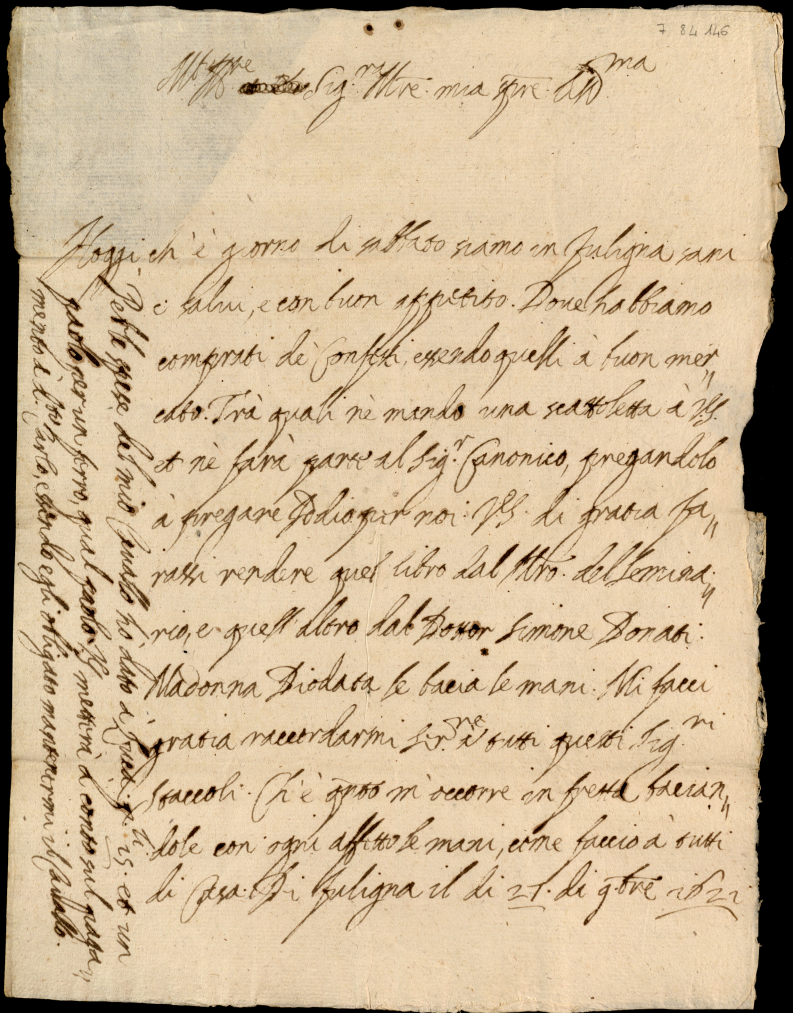 7 84 146
Sig.ra M.re mia
Hoggi ch'è giorno di sabbato siamo in fuligna sani
e salui, e con buon appetito. Doue habbiamo
comprati de Confetti, essendo quelli à buon mer„
cato. Trà quali nè mando una scattoletta à V.S.
et nè farà parte al Sig.r Canonico, pregandolo
à pregare Iddio per noi. V.S. di gratia fa„
rassi rendere quel libro dal Mro. del Semina„
rio, e quell'altro dal Dottor Simone Donati.
Madonna Diodata le bacia le mani. Mi facci
gratia raccordarmi Ser.re à tutti questi Sig.ri
Staccoli. Ch'è q.nto m'occorre in fretta bacian„
dole con ogni affetto le mani, come faccio à tutti
di Casa. Di fuligna il di 27. di 9bre 1621
Per le spese del mio Cauallo hò dato à q.ti 15. et un
paolo per un ferro, qual paolo V.S. metterà à conto sul paga„
mento à D. Carlo, essendo egli obligato mantenermi il Cauallo.